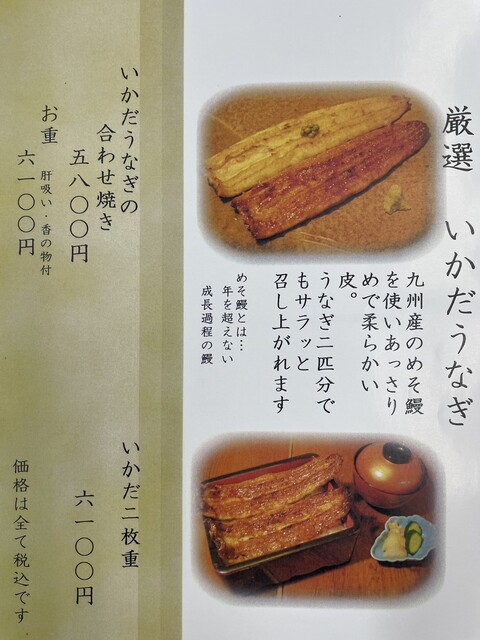 厳選　いかだうなぎ
九州産のめそ鰻
を使いあっさり
めで柔らかい
皮。
うなぎ二匹分で
もサラッと
召し上がれます
めそ鰻とは…
年を超えない
成長過程の鰻
いかだうなぎの
合わせ焼き
五八〇〇円
お重　肝吸い・香の物付
六一〇〇円
いかだ二枚重
六一〇〇円
価格は全て税込です